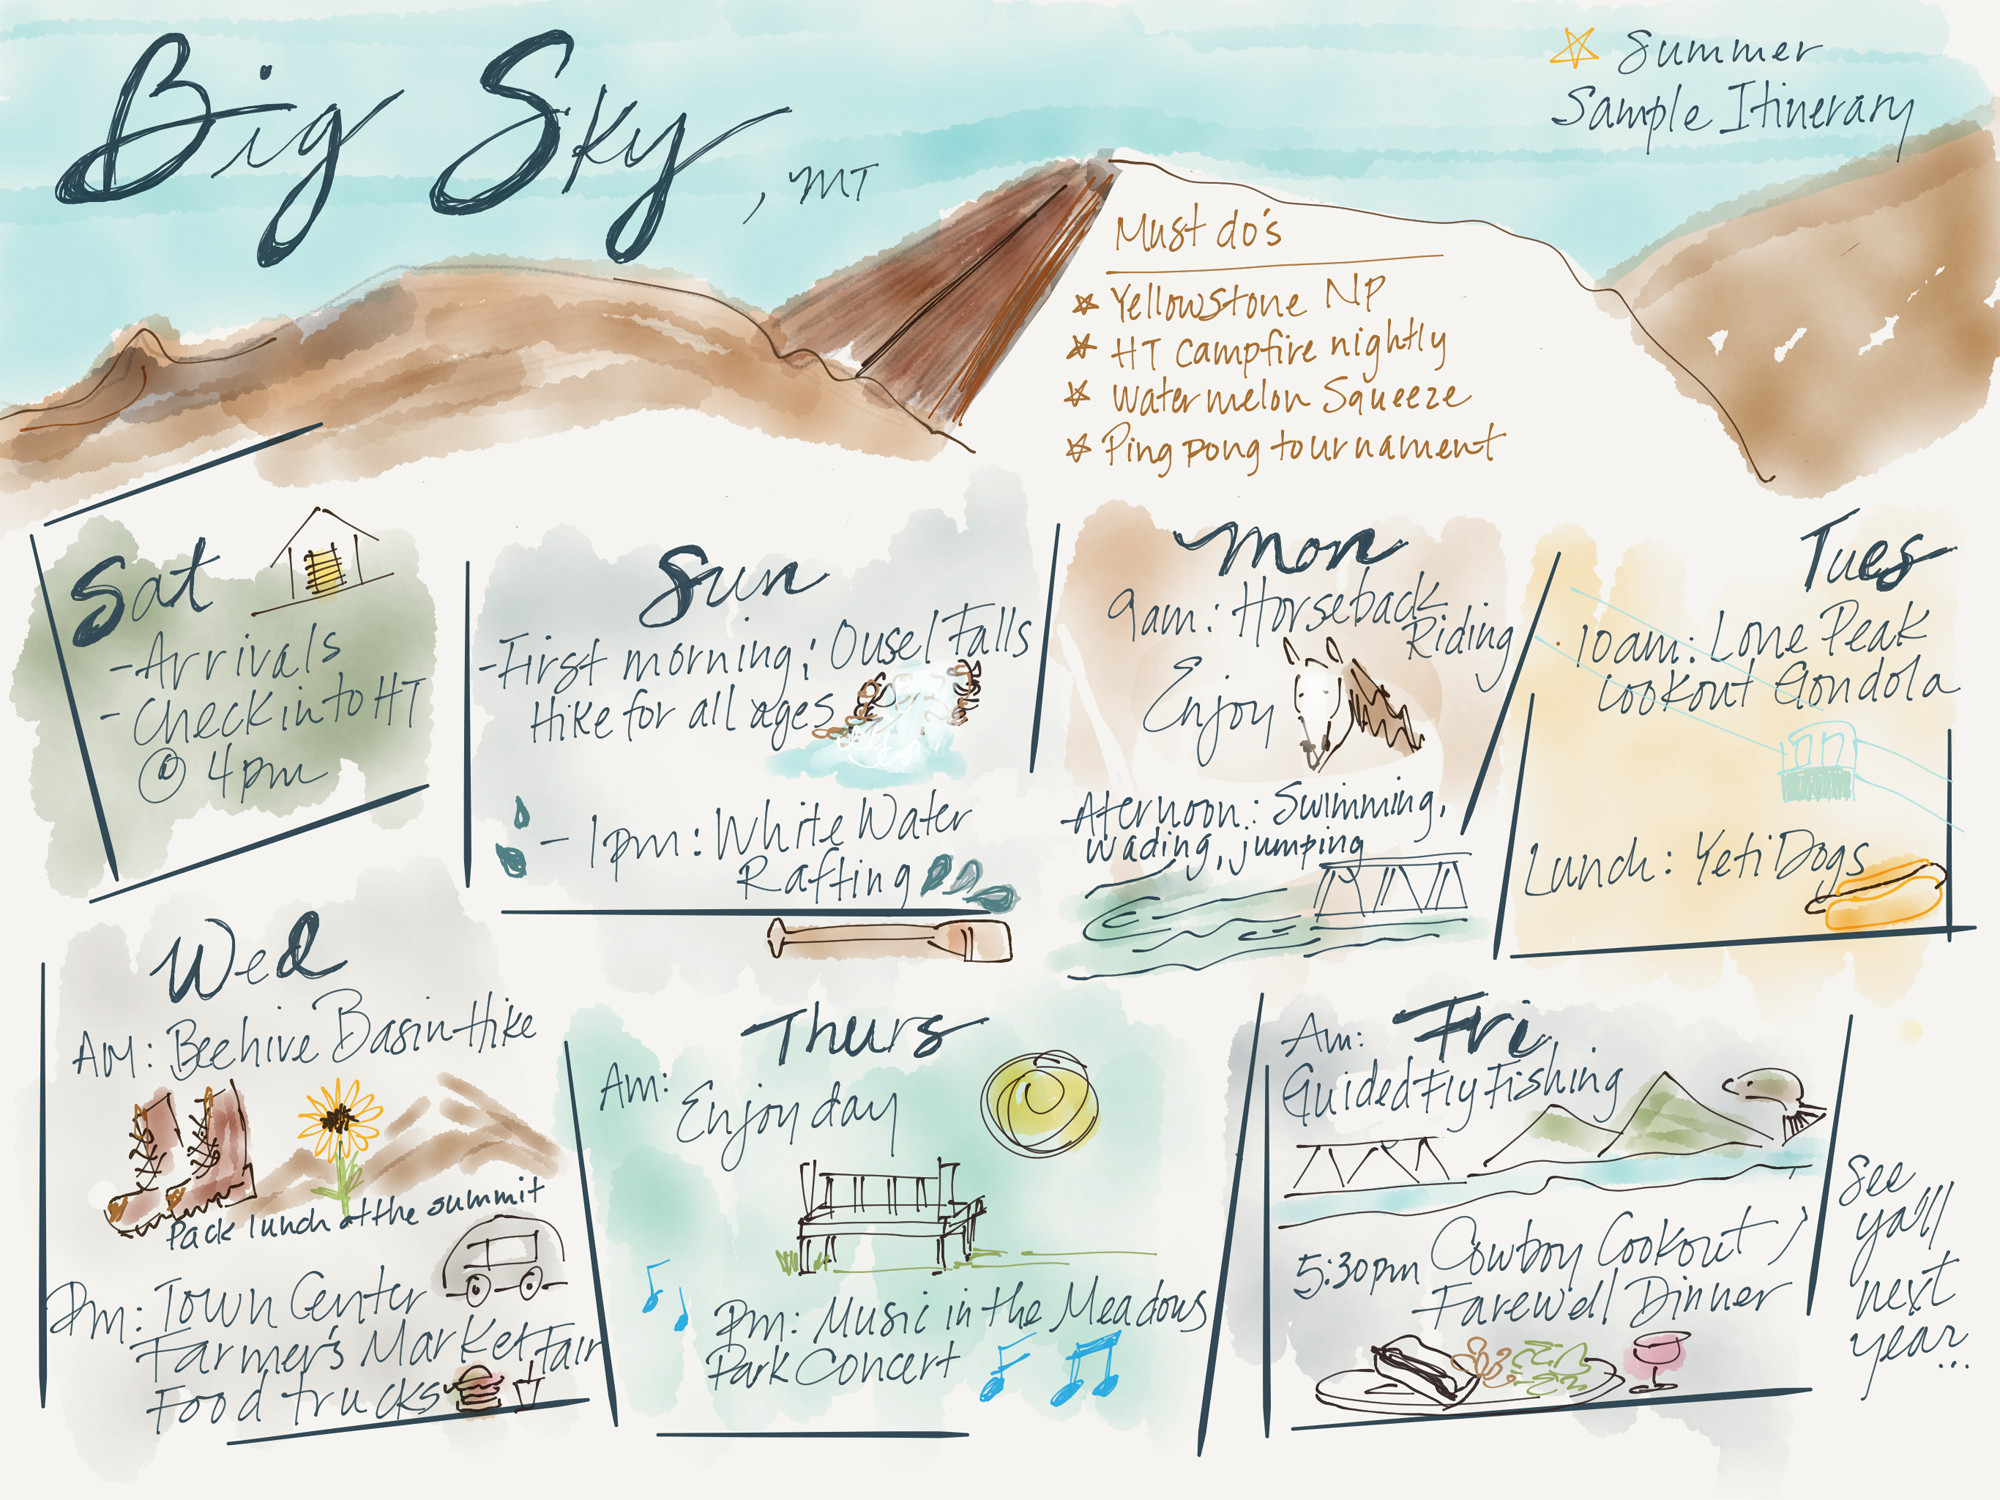 Big Sky, MT
Summer
Sample Itinerary
Must do's
Yellowstone NP
HT Campfire nightly
Watermelon Squeeze
Ping pong tournament
Sat
- Arrivals
- Check in to HT
@ 4pm
Sun
- First morning: Ousel Falls
Hike for all ages
- 1pm: White Water
Rafting
Mon
9am: Horseback
Riding
Enjoy
Afternoon: Swimming,
wading, jumping
Tues
10am: Lone Peak
Lookout Gondola
Lunch: Yeti Dogs
Wed
AM: Beehive Basin Hike
Pack lunch at the summit
Pm: Town Center
Farmer's Market Fair
Food trucks
Thurs
Am:
Enjoy day
Pm: Music in the Meadows
Park Concert
Fri
Am:
Guided Fly Fishing
5:30pm Cowboy Cookout /
Farewell Dinner
See
ya'll
next
year...